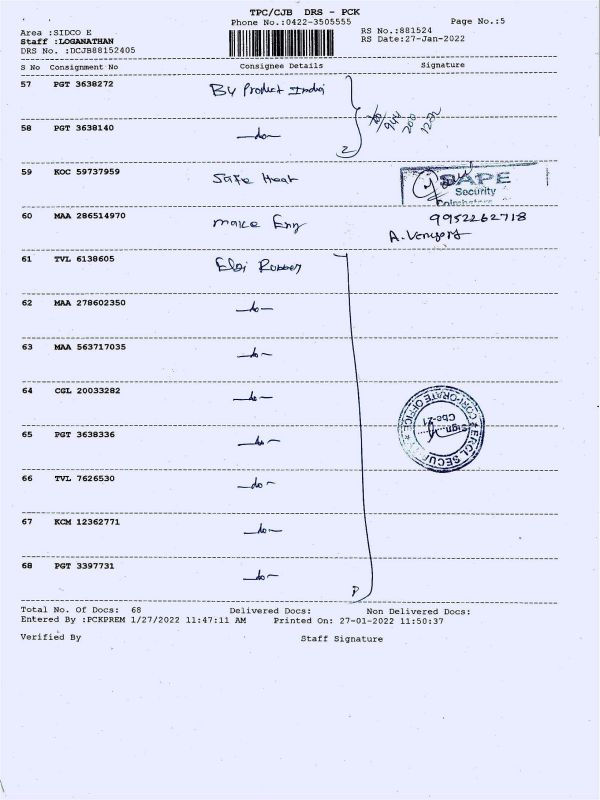 TPC/CJB DRS - PCK
Phone No.:0422-3505555
Page No.:5
Area :SIDCO E
RS No.:881524
Staff :LOGANATHAN
RS Date:27-Jan-2022
DRS No. :DCJB88152405
S No Consignment No Consignee Details Signature
57 PGT 3638272 By Product India
58 PGT 3638140 -do-
2
59 KOC 59737959 Safe Heat
SAFE
Security
Coimbatore
60 MAA 286514970 make Eng 9952262718
61 TVL 6138605 Elgi Rubber
62 MAA 278602350 -do-
63 MAA 563717035 -do-
64 CGL 20033282 -do-
65 PGT 3638336 -do-
CORPORATE OFFICE
Sign
Cbe-21
66 TVL 7626530 -do-
67 KCM 12362771 -do-
68 PGT 3397731 -do-
Total No. Of Docs: 68 Delivered Docs: Non Delivered Docs:
Entered By :PCKPREM 1/27/2022 11:47:11 AM Printed On: 27-01-2022 11:50:37
Verified By Staff Signature